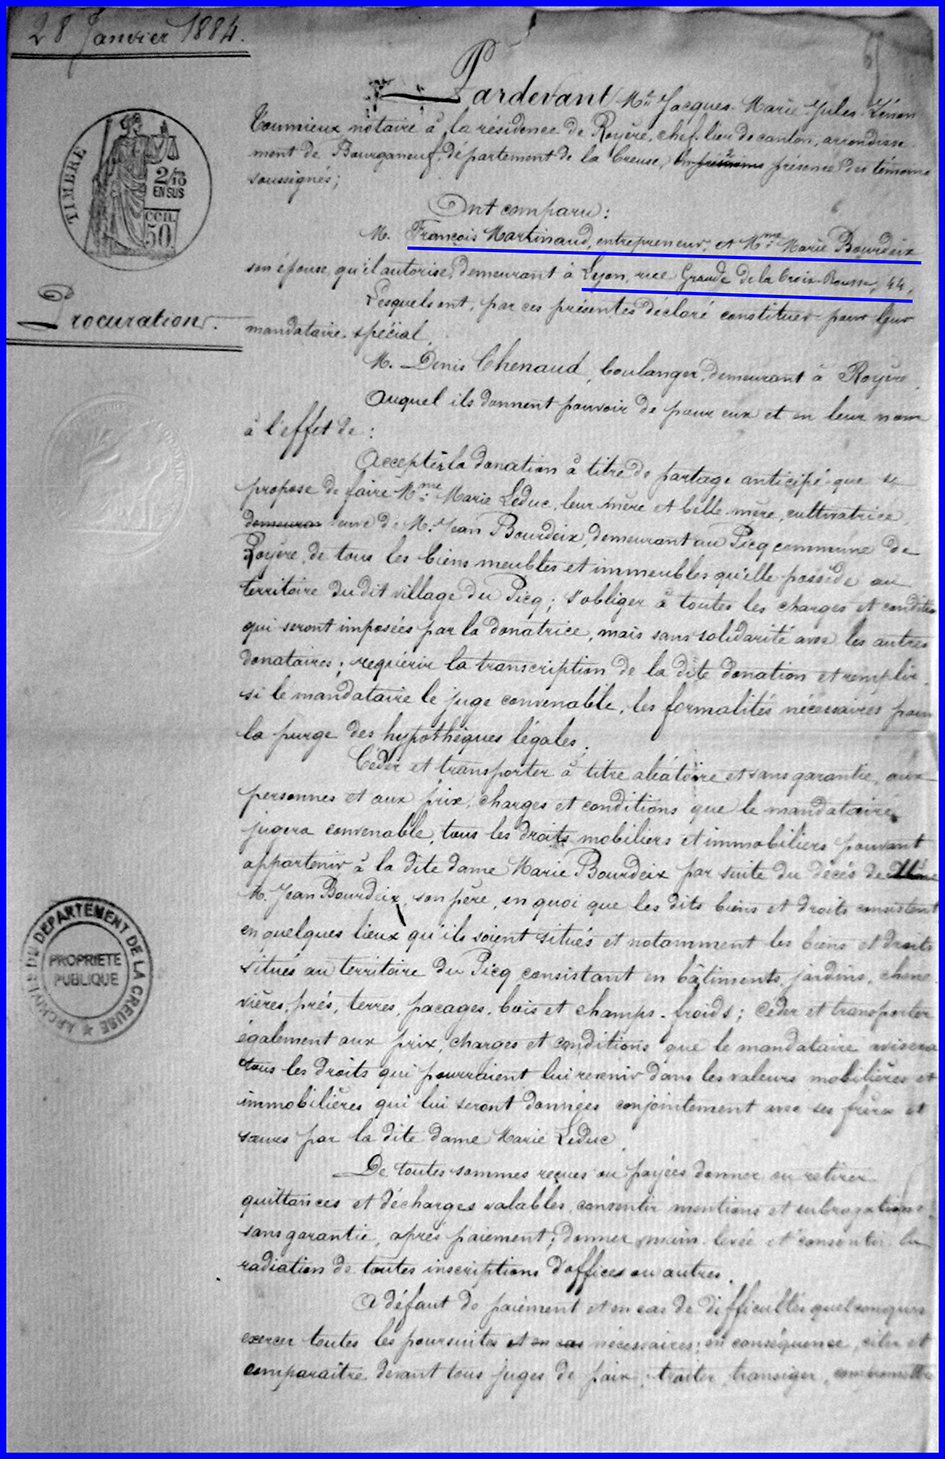 28 Janvier 1884.
Pardevant Me Jacques-Marie-Jules-Zénon
Toumieux notaire à la résidence de Royère, chef-lieu de canton, arrondisse
ment de Bourganeuf, département de la Creuse, présence des témoins
soussignés;
TIMBRE
2/10
EN SUS
50 cen.
Ont comparu:
M. François Martinaud, entrepreneur, et Mme Marie Bourdeix
son épouse, qu'il autorise, demeurant à Lyon, rue Grande de la Croix-Rousse, 44,
Procuration.
Lesquels ont, par ces présentes déclaré constituer pour leur
mandataire spécial
M. Denis Chenaud, boulanger, demeurant à Royère,
Auquel ils donnent pouvoir de pour eux et en leur nom
à l'effet de:
Accepter la donation à titre de partage anticipé que se
propose de faire Mme Marie Leduc, leur mère et belle mère, cultivatrice,
demeurant veuve de M. Jean Bourdeix, demeurant au Picq commune de
Royère, de tous les biens meubles et immeubles qu'elle possède au
territoire du dit village du Picq; s'obliger à toutes les charges et conditions
qui seront imposées par la donatrice, mais sans solidarité avec les autres
donataires; requérir la transcription de la dite donation et remplir,
si le mandataire le juge convenable, les formalités nécessaires pour
la purge des hypothèques légales.
Céder et transporter à titre aléatoire et sans garantie, aux
personnes et aux prix, charges et conditions que le mandataire
jugera convenable, tous les droits mobiliers et immobiliers pouvant
appartenir à la dite dame Marie Bourdeix par suite du décès de
M. Jean Bourdeix, son père, en quoi que les dits biens et droits consistent
en quelques lieux qu'ils soient situés et notamment les biens et droits
situés au territoire du Picq consistant en bâtiments, jardins, chene
vières, prés, terres, pacages, bois et champs-froids; Céder et transporter
également aux prix, charges et conditions que le mandataire avisera
tous les droits qui pourraient lui revenir dans les valeurs mobilières et
immobilières qui lui seront données conjointement avec ses frères et
sœurs par la dite dame Marie Leduc
ARCHIVES DU DEPARTEMENT DE LA CREUSE
PROPRIETE
PUBLIQUE
De toutes sommes reçues ou payées donner ou retirer
quittances et décharges valables, consentir mentions et subrogations
sans garantie, après paiement; donner main levée et consentir la
radiation de toutes inscriptions d'office ou autres.
A défaut de paiement et en cas de difficultés quelconques
exercer toutes les poursuites et en cas nécessaires; en conséquence, citer et
comparaître devant tous juges de paix, traiter, transiger, compromettre